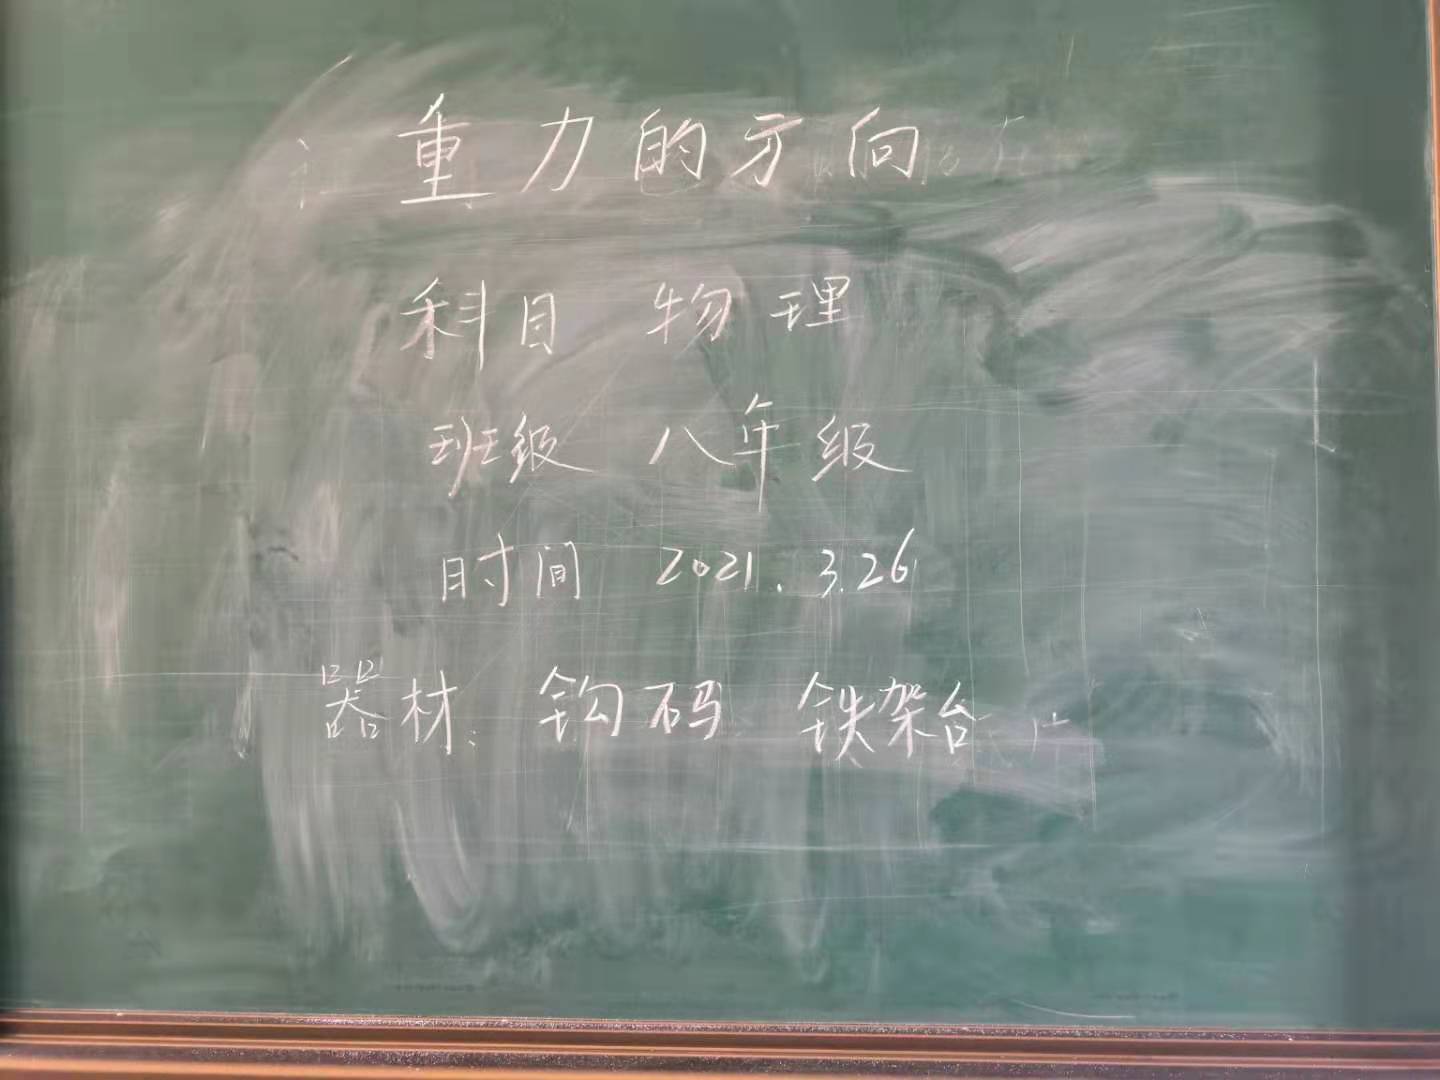 重力的方向
科目 物理
班级 八年级
时间 2021.3.26
器材: 钩码 铁架台